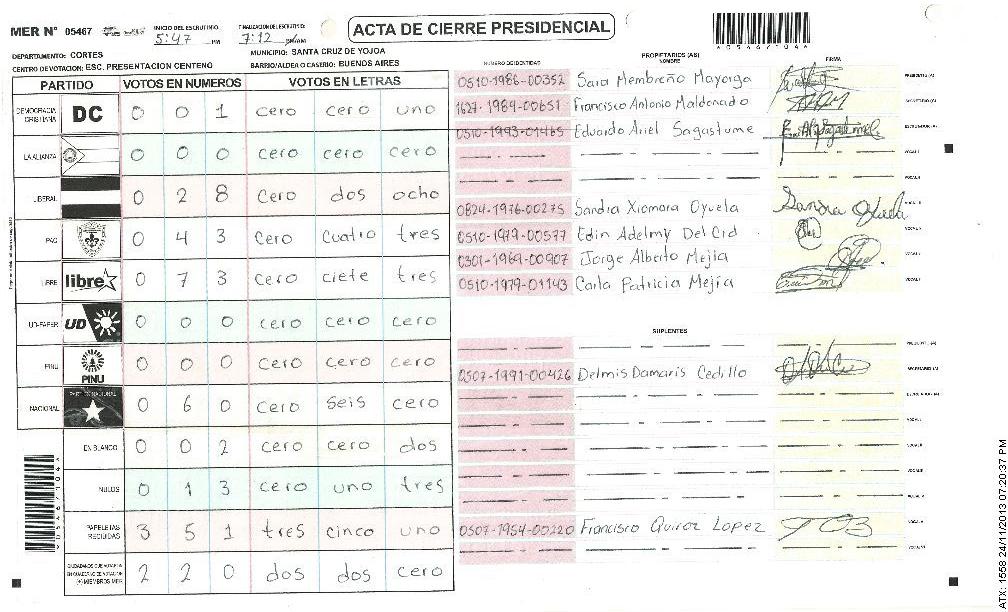 MER N° 05467
INICIO DEL ESCRUTINIO: 5:47 PM
FINALIZACION DEL ESCRUTINIO: 7:12 PM/AM
ACTA DE CIERRE PRESIDENCIAL
DEPARTAMENTO: CORTES
MUNICIPIO: SANTA CRUZ DE YOJOA
CENTRO DE VOTACION: ESC. PRESENTACION CENTENO
BARRIO/ALDEA O CASERIO: BUENOS AIRES
PARTIDO VOTOS EN NUMEROS VOTOS EN LETRAS
DEMOCRACIA CRISTIANA DC 0 0 1 cero cero uno
LA ALIANZA 0 0 0 cero cero cero
LIBERAL 0 2 8 cero dos ocho
PAC 0 4 3 cero cuatro tres
LIBRE libre 0 7 3 cero ciete tres
UD-FAPER UD 0 0 0 cero cero cero
PINU PINU 0 0 0 cero cero cero
NACIONAL PARTIDO NACIONAL 0 6 0 cero seis cero
EN BLANCO 0 0 2 cero cero dos
NULOS 0 1 3 cero uno tres
PAPELETAS RECIBIDAS 3 5 1 tres cinco uno
CIUDADANOS QUE VOTARON EN CUADERNO DE VOTACION (+) MIEMBROS MER 2 2 0 dos dos cero
NUMERO DE IDENTIDAD PROPIETARIOS (AS) NOMBRE FIRMA
0510-1986-00352 Sara Membreño Mayorga PRESIDENTE (A)
1627-1989-00651 Francisco Antonio Maldonado SECRETARIO (A)
0510-1993-01465 Eduardo Ariel Sagastume ESCRUTADOR (A)
VOCAL I
VOCAL II
0824-1976-00275 Sandra Xiomara Oyuela
0510-1979-00577 Edin Adelmy Del Cid
0301-1969-00907 Jorge Alberto Mejia
0510-1979-01143 Carla Patricia Mejía
SUPLENTES
PRESIDENTE (A)
0507-1991-00426 Delmis Damaris Cedillo SECRETARIO (A)
ESCRUTADOR (A)
VOCAL I
VOCAL II
0507-1954-00220 Francisco Quiroz Lopez
ATX: 1558 24/11/2013 07:20:37 PM